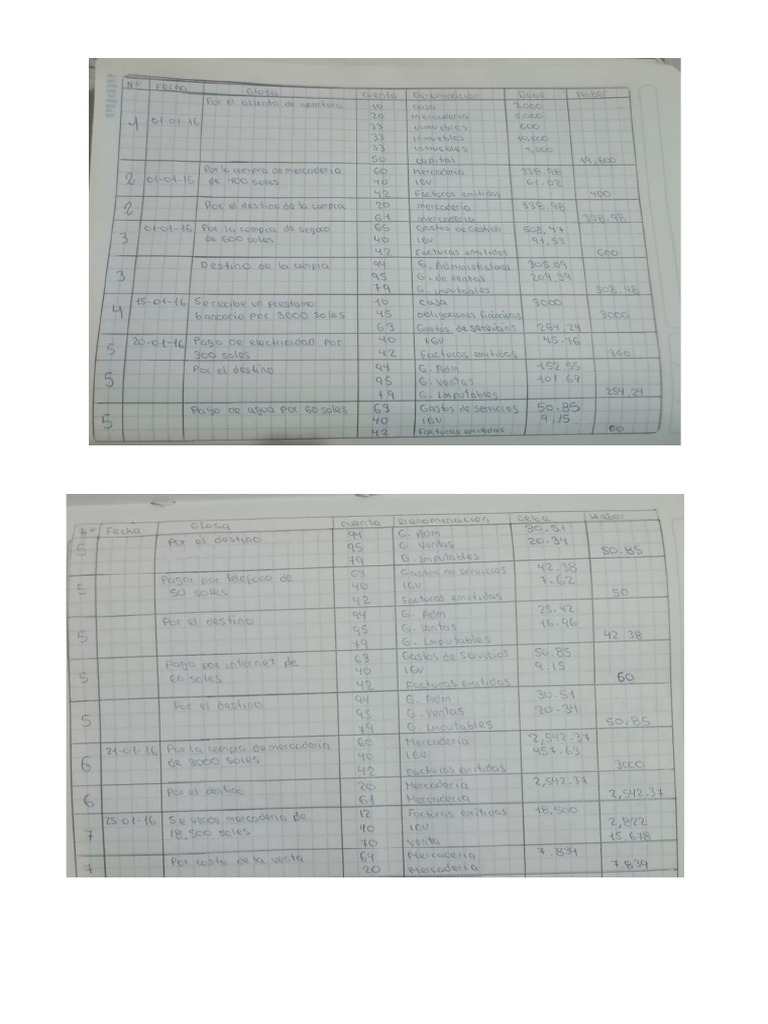 Nº Fecha Glosa Cuenta Denominación Debe Haber
Por el asiento de apertura 10 3000
20 mercadería 5,000
1 01-01-16 33 inmuebles 600
33 inmuebles
33 inmuebles 1,000
50 capital 19,600
2 01-01-16 Por la compra de mercadería 60 Mercadería 338.98
de 400 soles 40 IGV 61.02
42 Facturas emitidas 400
2 Por el destino de la compra 20 mercadería 338.98
61 mercadería 338.98
3 01-01-16 Por la compra de seguro 65 Gastos de Gestión 508.47
de 600 soles 40 IGV 91.53
42 Facturas emitidas 600
Destino de la compra 94 G. Administrativos 305.09
3 95 G. de Ventas
79 G. imputables 508.48
15-01-16 Se recibe un prestamo 10 casa 3000
4 bancario por 3000 soles 45 obligaciones financieras 3000
63 Gastos de servicios 254.24
5 20-01-16 Pago de electricidad por 40 IGV 45.76
300 soles 42 Facturas emitidas 300
Por el destino 94 G. Adm 152.55
5 95 G. Ventas 101.69
79 G. Imputables 254.24
Pago de agua por 60 soles 63 Gastos de servicios 50.85
5 40 IGV 9.15
42 Facturas emitidas 60
Nº Fecha Glosa Cuenta Denominación Debe Haber
Por el destino 94 G. Adm 30.51
5 95 G. Ventas 20.34
79 G. Imputables 50.85
63 Gastos de servicios 42.38
5 Pagos por telefono de 40 IGV 7.62
50 soles 42 Facturas emitidas 50
Por el destino 94 G. Adm 25.42
5 95 G. Ventas 16.96
79 G. Imputables 42.38
Pago por internet de 63 Gastos de servicios 50.85
5 60 soles 40 IGV 9.15
42 Facturas emitidas 60
Por el destino 94 G. Adm 30.51
5 95 G. Ventas 20.34
79 G. Imputables 50.85
21-01-16 Por la compra de mercadería 60 Mercadería 2,542.37
6 de 3000 soles 40 IGV 457.63
42 Facturas emitidas 3000
6 Por el destino 20 Mercadería 2,542.37
61 Mercadería 2,542.37
25-01-16 Se vende mercadería de 12 Facturas emitidas 18,500
7 18,500 soles 40 IGV 2,822
70 Venta 15,678
Por costo de la venta 69 Mercadería 7.839
7 20 Mercadería 7.839